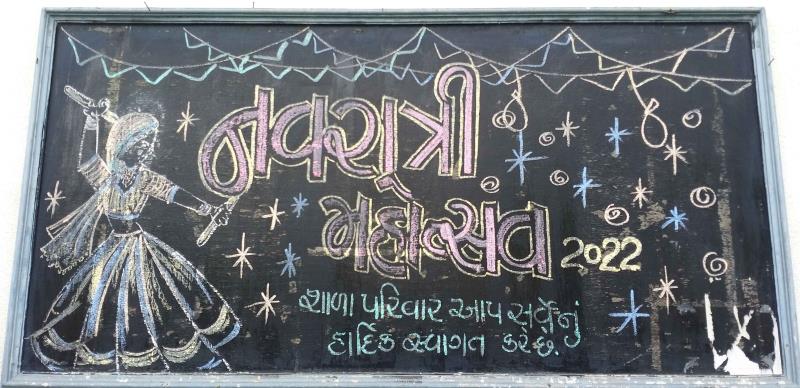 નવરાત્રી
મહોત્સવ 2022
શાળા પરિવાર આપ સર્વેનું
હાર્દિક સ્વાગત કરે છે.